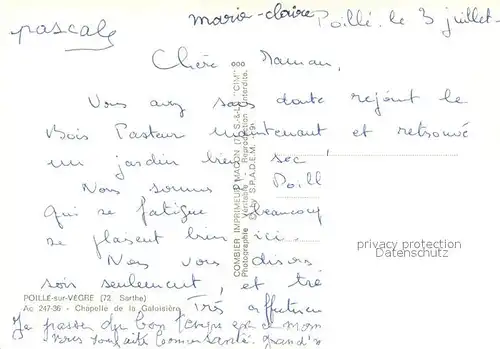 marie-claire Poillé. le 3 juillet.
pascale
Chère Maman,
Vous avez sans doute rejoint le
Bois Pasteur maintenant et retrouvé
un jardin bien sec,
Nous sommes Poill
qui se fatigue beaucoup
se plaisent bien ici.
Nous vous disons
soir seulement, et
Très affectueu
Je passe du bon temps en ce mom
COMBIER IMPRIMEUR MACON (71 S.-&-L.) "CIM"
Photographie Véritable - Reproduction Interdite.
S.P.A.D.E.M.
privacy protection
Datenschutz
POILLÉ-sur-VÈGRE (72. Sarthe)
Ac 247-36 - Chapelle de la Galoisière